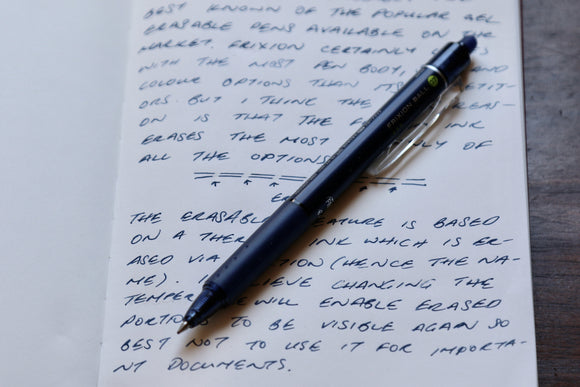 BEST KNOWN OF THE POPULAR GEL
ERASABLE PENS AVAILABLE ON THE
MARKET. FRIXION CERTAINLY
WITH THE MOST PEN BODY, AND
COLOUR OPTIONS THAN ITS ETIT-
ORS. BUT I THINK THE REAS-
ON IS THAT THE INK
ERASES THE MOST OF
ALL THE OPTIONS
THE ERASABLE FEATURE IS BASED
ON A INK WHICH IS ER-
ASED VIA (HENCE THE NA-
ME). I CHANGING THE
WILL ENABLE ERASED
PORTIONS TO BE VISIBLE AGAIN SO
BEST NOT TO USE IT FOR IMPORTA-
NT DOCUMENTS.
FRIXION BALL